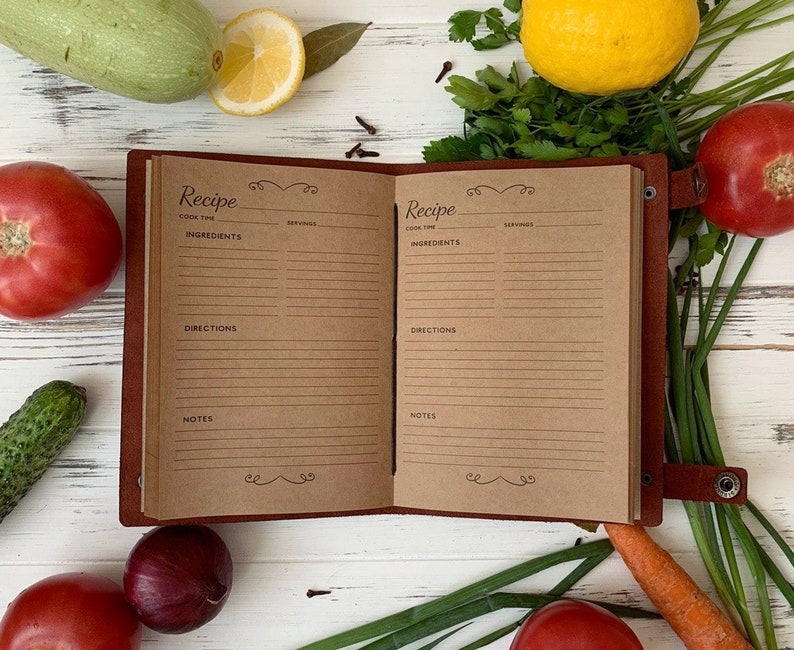 Recipe
COOK TIME SERVINGS
INGREDIENTS
DIRECTIONS
NOTES
Recipe
COOK TIME SERVINGS
INGREDIENTS
DIRECTIONS
NOTES